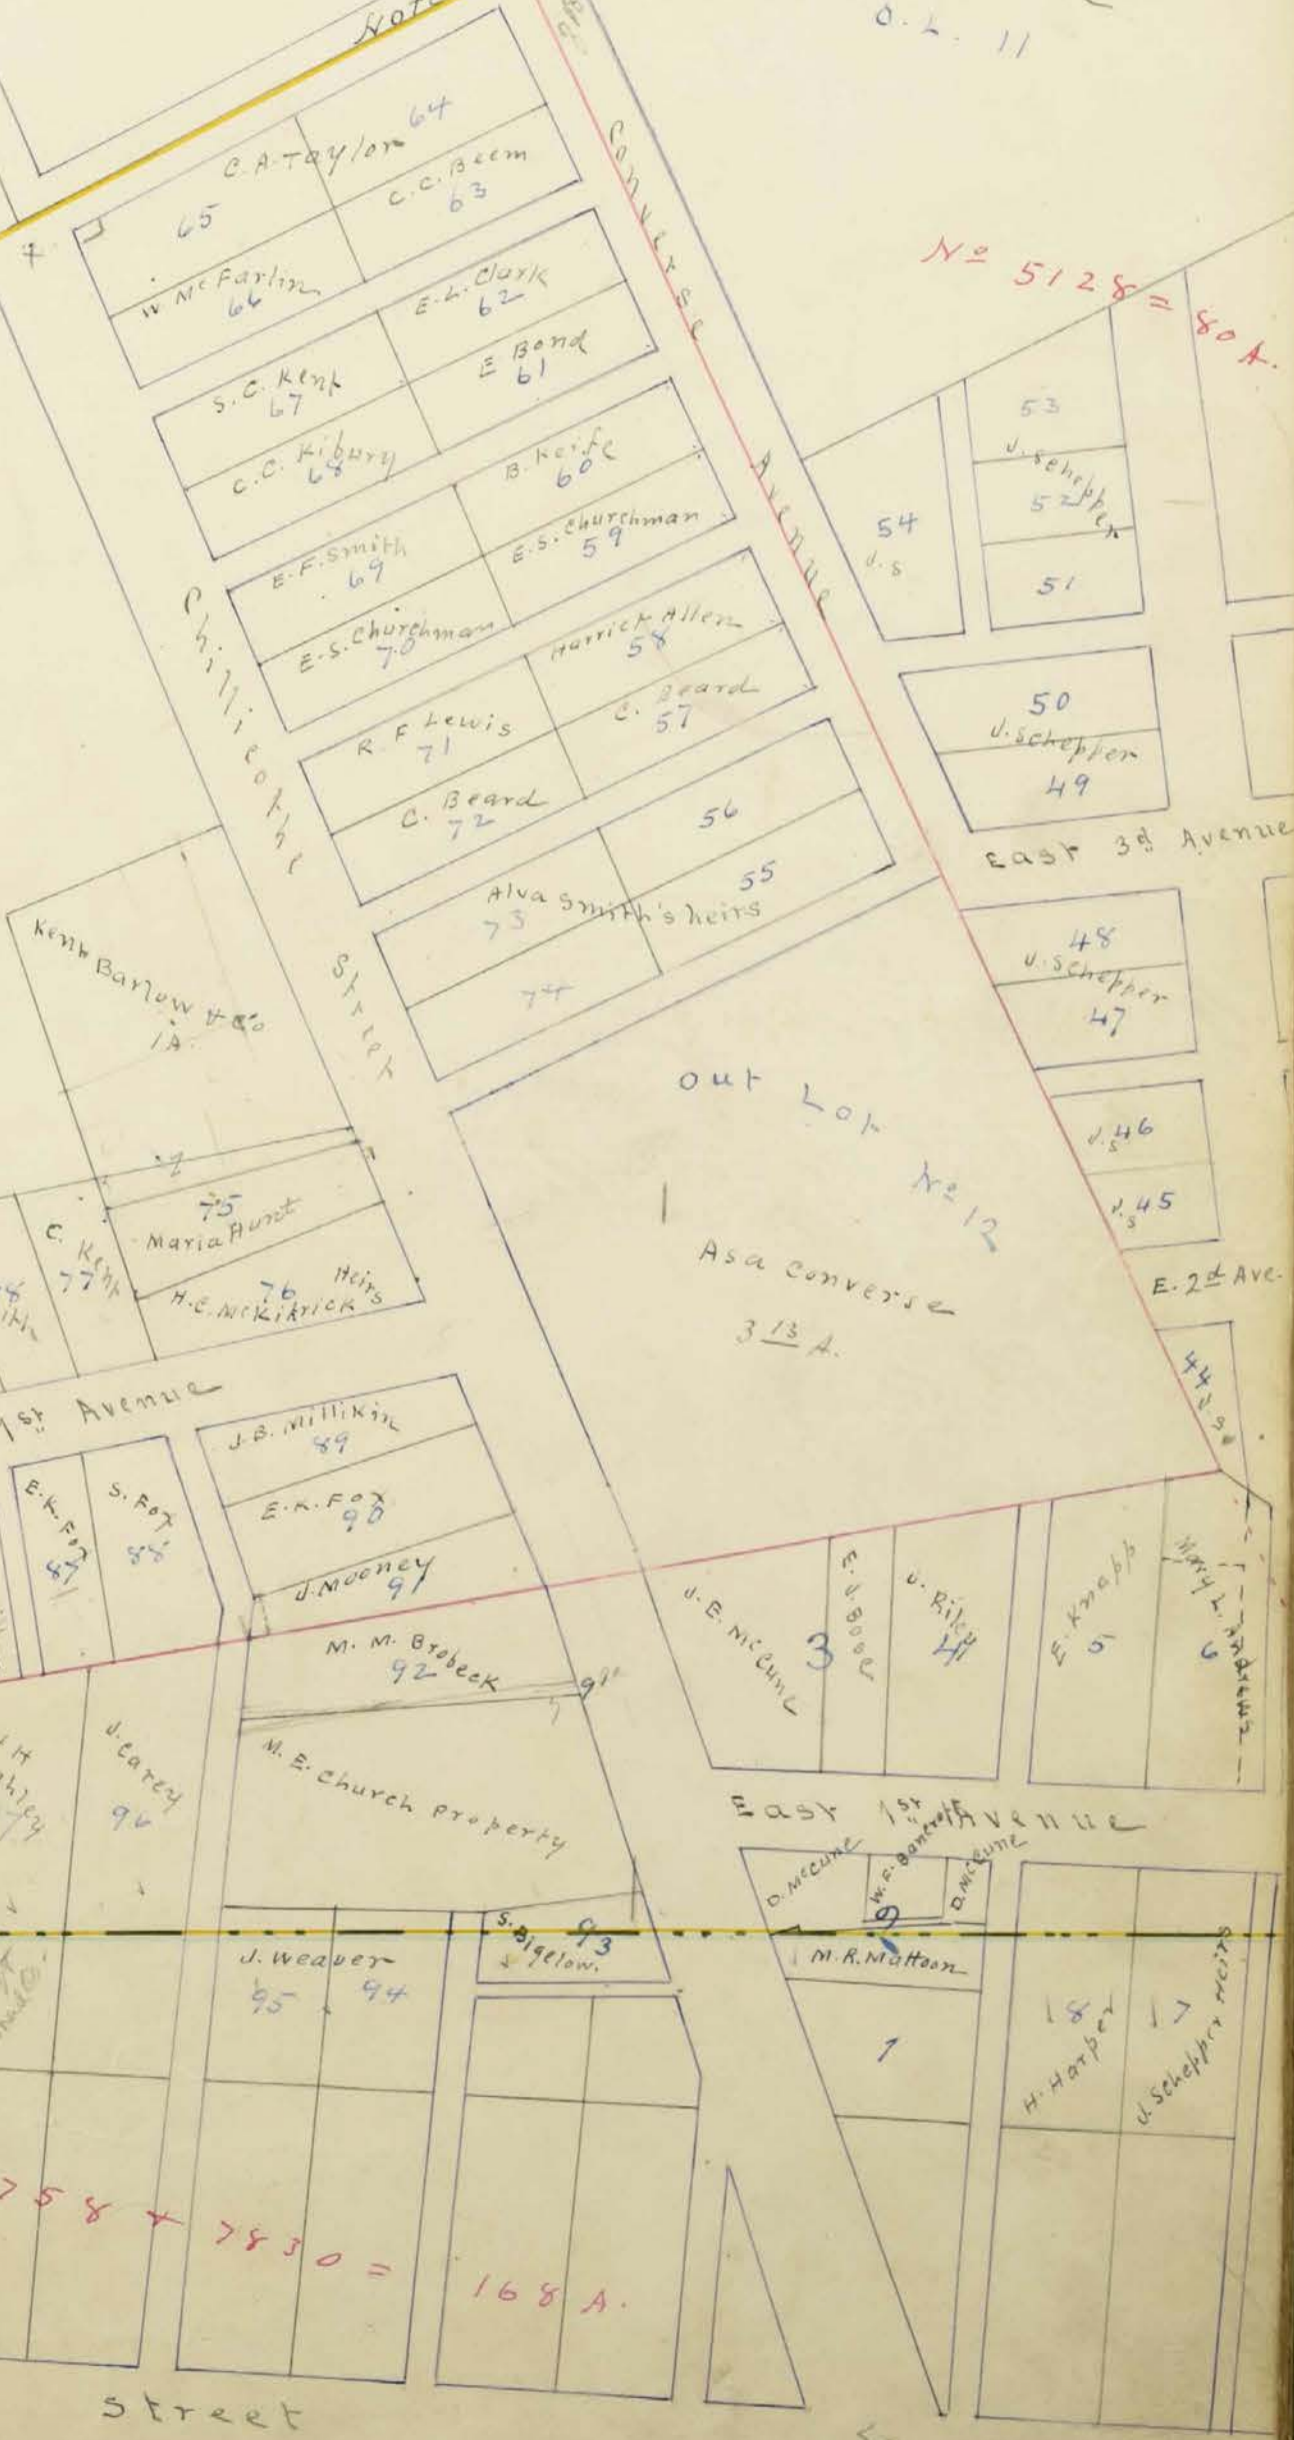 O. L. 11
C. A. Taylor 64
65
C. C. Beem
63
W. McFarlin
66
E. L. Clark
62
S. C. Kent
67
E Bond
61
C. C. Kibury
68
B. Keife
60
E. F. Smith
69
E. S. Churchman
59
E. S. Churchman
70
Harriet Allen
58
R. F Lewis
71
C. Beard
57
C. Beard
72
56
55
Alva Smith's heirs
73
74
Converse Avenue
Chillicothe Street
No 5128 = 80 A.
53
J. Schepper
52
51
54
J. S
50
J. Schepper
49
East 3d Avenue
48
J. Schepper
47
J. S 46
J. S 45
E. 2d Ave.
44
Kent Barlow & Co
1 A.
75
Maria Hunt
76 Heirs
H. C. McKitrick
C. Kent
77
Out Lot No 12
Asa Converse
3 13 A.
1st Avenue
J. B. Millikin
89
E. K. Fox
90
J. Mooney
91
E. K. Fox
87
S. Fox
88
M. M. Brobeck
92
J. Carey
96
M. E. Church Property
J. E. McCune
3
E. J. Booe
J. Riley
4
E. Knapp
5
Mary L. Andrews
6
East 1st Avenue
D. McCune
W. F. Bancroft
D. McCune
M. R. Mattoon
1
S. Bigelow.
93
J. Weaver
95 94
18
H. Harper
17
J. Schepper Heirs
758 + 7830 = 168 A.
Street